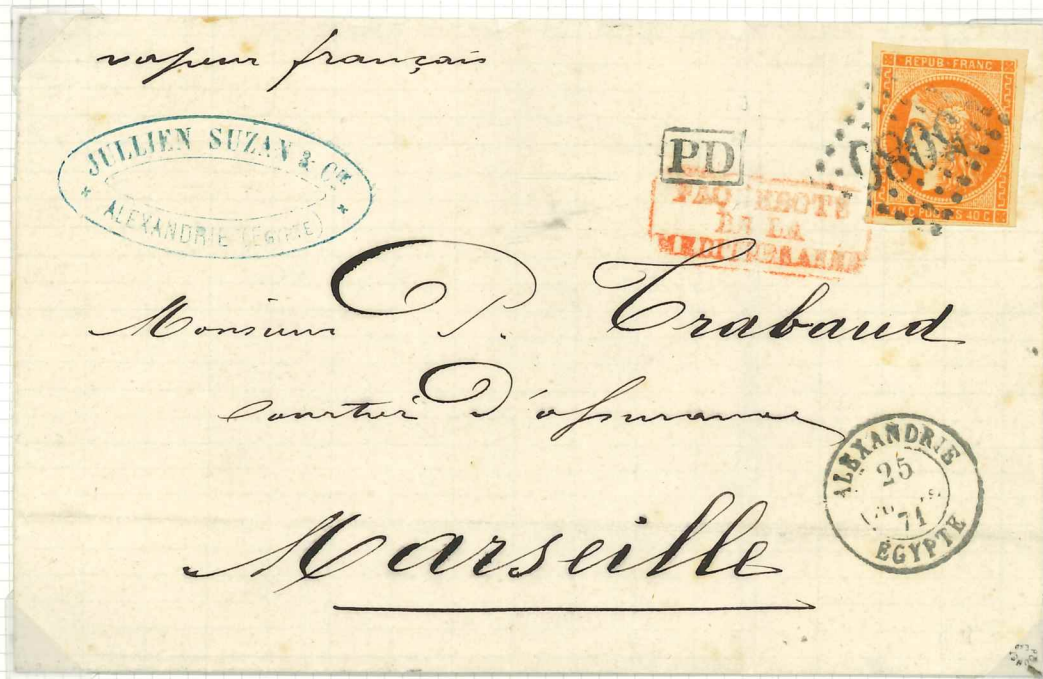 vapeur français
REPUB·FRANC
JULLIEN SUZAN & Cie
ALEXANDRIE (EGYPTE)
PD
PAQUEBOTS
DE LA
MEDITERRANEE
POSTES 40 C
Monsieur P. Trabaud
Courtier D'assurances
Marseille
ALEXANDRIE
25
71
EGYPTE